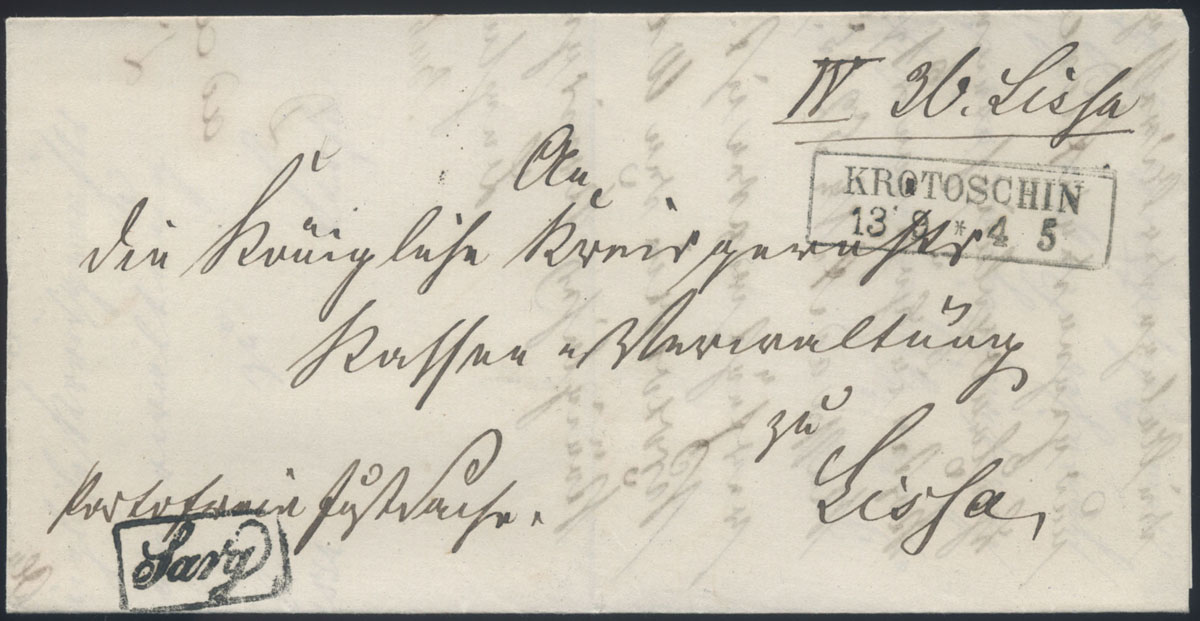 IV 36. Lissa
KROTOSCHIN
13 9 * 4 5
An
die Königliche Kreisgerichts
Kassen Verwaltung
zu
Lissa,
Portofreie Justsache.
Sarg